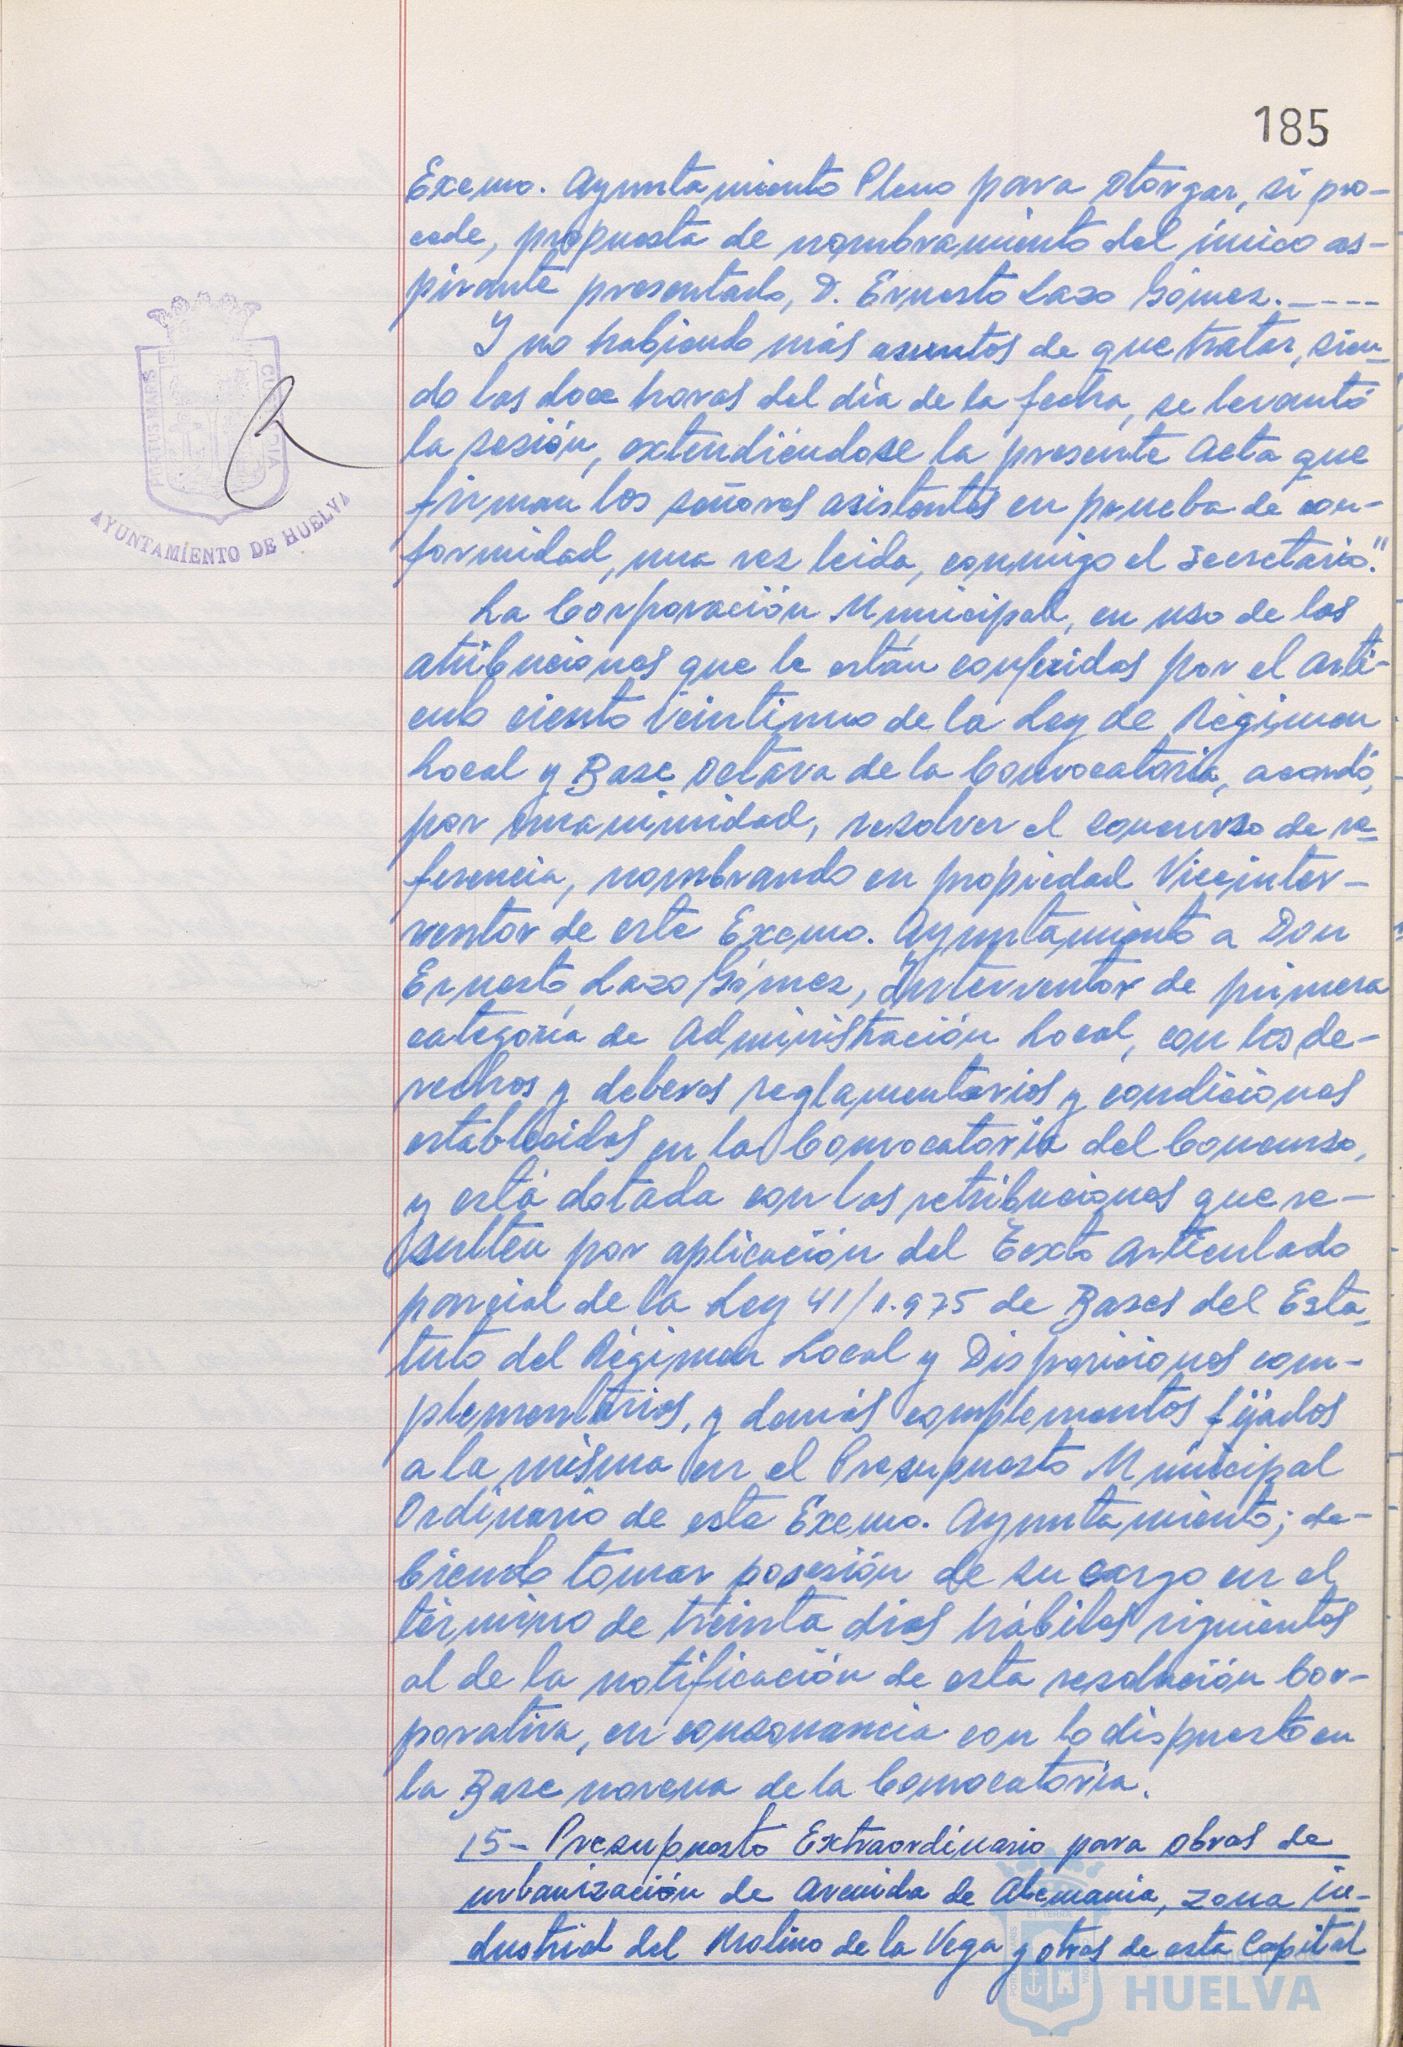 185
Excmo. Ayuntamiento Pleno para otorgar, si pro-
cede, propuesta de nombramiento del único as-
pirante presentado, D. Ernesto Lazo Gómez.----
Y no habiendo más asuntos de que tratar, sien-
do las doce horas del día de la fecha, se levantó
la sesión, extendiéndose la presente Acta que
firman los señores asistentes en prueba de con-
formidad, una vez leida, conmigo el Secretario."
La Corporación Municipal, en uso de las
atribuciones que le están conferidas por el arti-
culo ciento veintinuo de la Ley de Régimen
Local y Base Octava de la Convocatoria, acordó,
por unanimidad, resolver el concurso de re-
ferencia, nombrando en propiedad Viceinter-
ventor de este Excmo. Ayuntamiento a Don
Ernesto Lazo Gómez, Interventor de primera
categoría de Administración Local, con los de-
rechos y deberes reglamentarios y condiciones
establecidas en la Convocatoria del Concurso,
y está dotada con las retribuciones que re-
sulten por aplicación del Texto Articulado
parcial de la Ley 41/1.975 de Bases del Esta-
tuto del Régimen Local y Disposiciones com-
plementarias, y demás complementos fijados
a la misma en el Presupuesto Municipal
Ordinario de este Excmo. Ayuntamiento; de-
biendo tomar posesión de su cargo en el
término de treinta dias hábiles siguientes
al de la notificación de esta resolución Cor-
porativa, en consonancia con lo dispuesto en
la Base novena de la Convocatoria.
15- Presupuesto Extraordinario para obras de
urbanización de Avenida de Alemania, zona in-
dustrial del Molino de la Vega y otras de esta Capital
PORTUS MARIS
CUSTODIA
AYUNTAMIENTO DE HUELVA
HUELVA